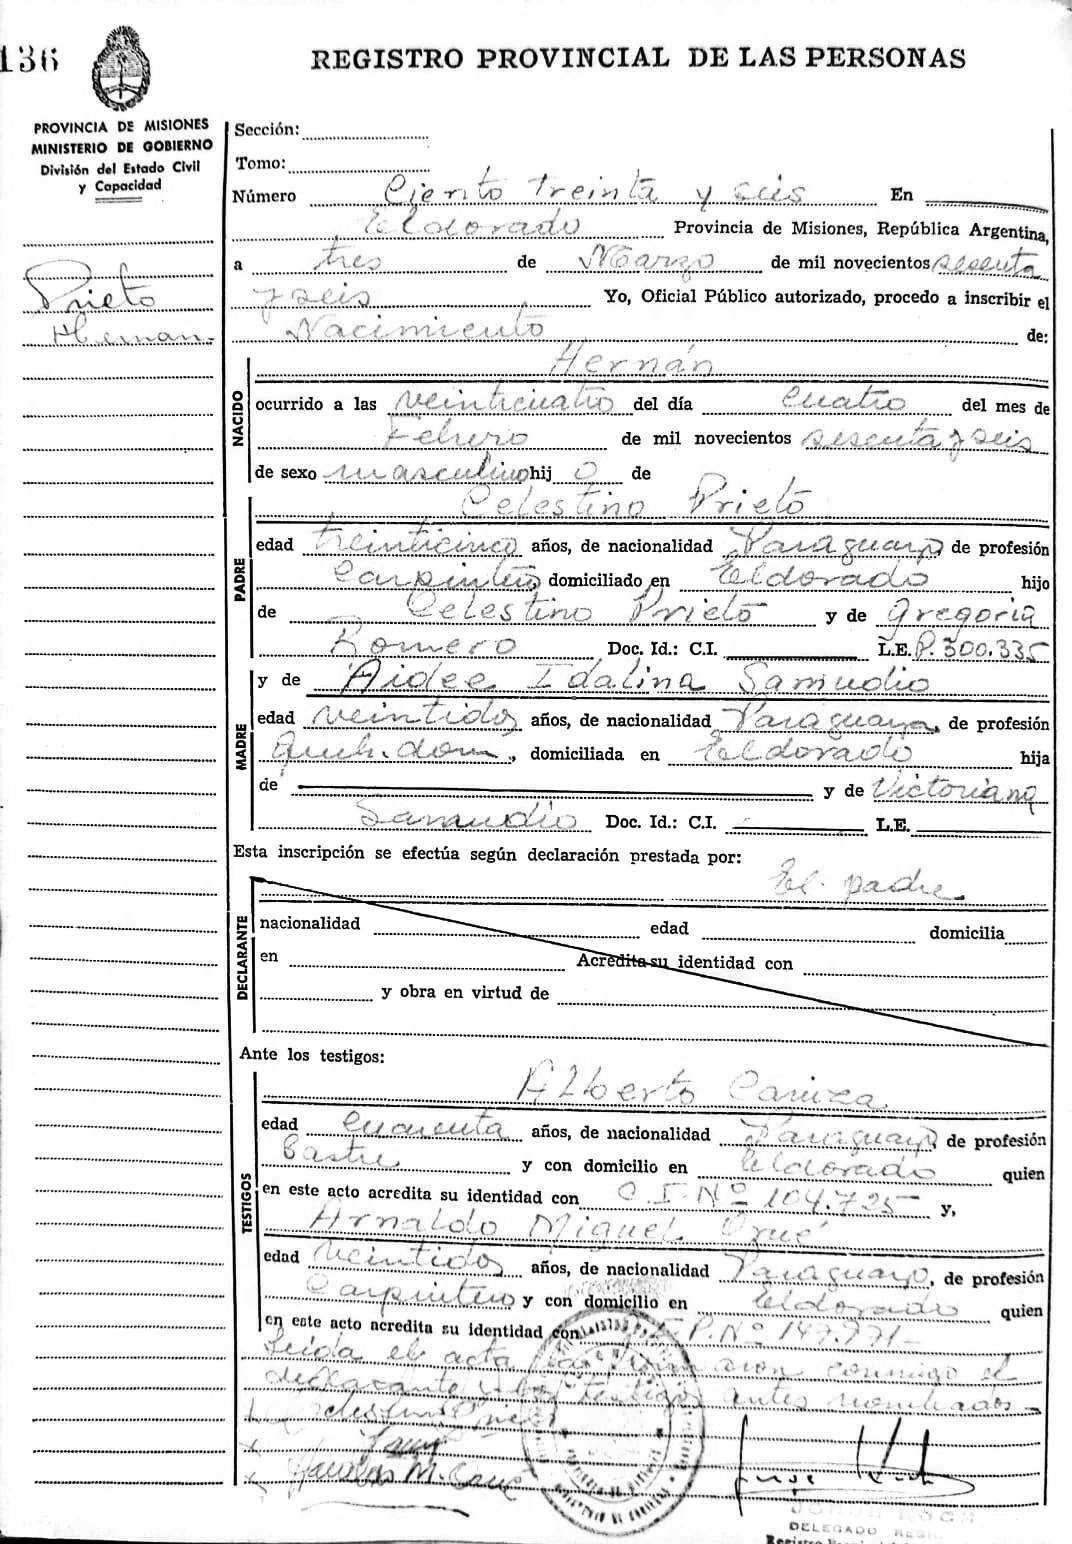 136
REGISTRO PROVINCIAL DE LAS PERSONAS
PROVINCIA DE MISIONES
MINISTERIO DE GOBIERNO
División del Estado Civil
y Capacidad
Prieto
Hernan.
Sección:
Tomo:
Número Ciento treinta y seis En
Eldorado Provincia de Misiones, República Argentina,
a tres de Marzo de mil novecientos sesenta
y seis Yo, Oficial Público autorizado, procedo a inscribir el
Nacimiento de:
NACIDO
Hernán
ocurrido a las veinticuatro del día cuatro del mes de
Febrero de mil novecientos sesenta y seis
de sexo masculino hij o de
PADRE
Celestino Prieto
edad treinticinco años, de nacionalidad Paraguayo de profesión
Carpintero, domiciliado en Eldorado hijo
de Celestino Prieto y de Gregoria
Romero Doc. Id.: C.I. L.E. P. 300.335
MADRE
y de Aidee Idalina Samudio
edad veintidos años, de nacionalidad Paraguaya, de profesión
Queh. dom., domiciliada en Eldorado hija
de y de Victoriana
Samudio Doc. Id.: C.I. L.E.
Esta inscripción se efectúa según declaración prestada por:
El padre
DECLARANTE
nacionalidad edad domicilia
en Acredita su identidad con
y obra en virtud de
Ante los testigos:
TESTIGOS
Alberto
edad Cuarenta años, de nacionalidad Paraguayo, de profesión
Sastre y con domicilio en Eldorado quien
en este acto acredita su identidad con C.I. Nº 104.725 y,
Arnaldo Miguel Orué
edad veintidos años, de nacionalidad Paraguayo, de profesión
Carpintero y con domicilio en Eldorado quien
en este acto acredita su identidad con P. Nº 147.971
Leida el acta la firmaron conmigo el
declarante y los testigos antes nombrados
DELEGADO